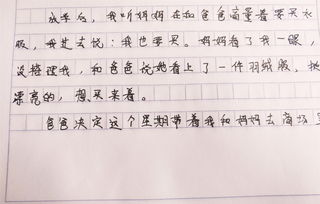 放学后，我听妈妈在和爸爸商量着要买衣
服，我进去说：我也要买。妈妈看了我一眼，
没搭理我，和爸爸说她看上了一件羽绒服，挺
漂亮的，想买来着。
爸爸决定这个星期带着我和妈妈去商场